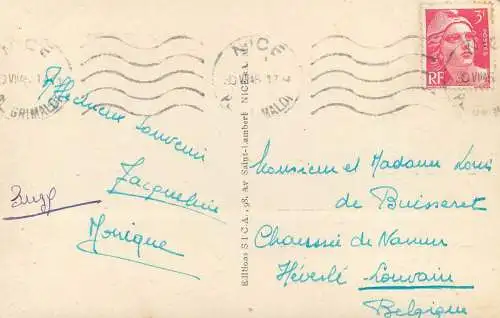 NICE
30 VII 45
R. GRIMALDI
NICE
30 VII 45 17
R. GRIMALDI
3F
RF
Affectueux souvenir
Jacqueline
Monique
Editions S I C A , 98, Av Saint-Lambert NICE
Monsieur et Madame Louis
de Buisseret
Chaussée de Namur
Héverlé Louvain
Belgique